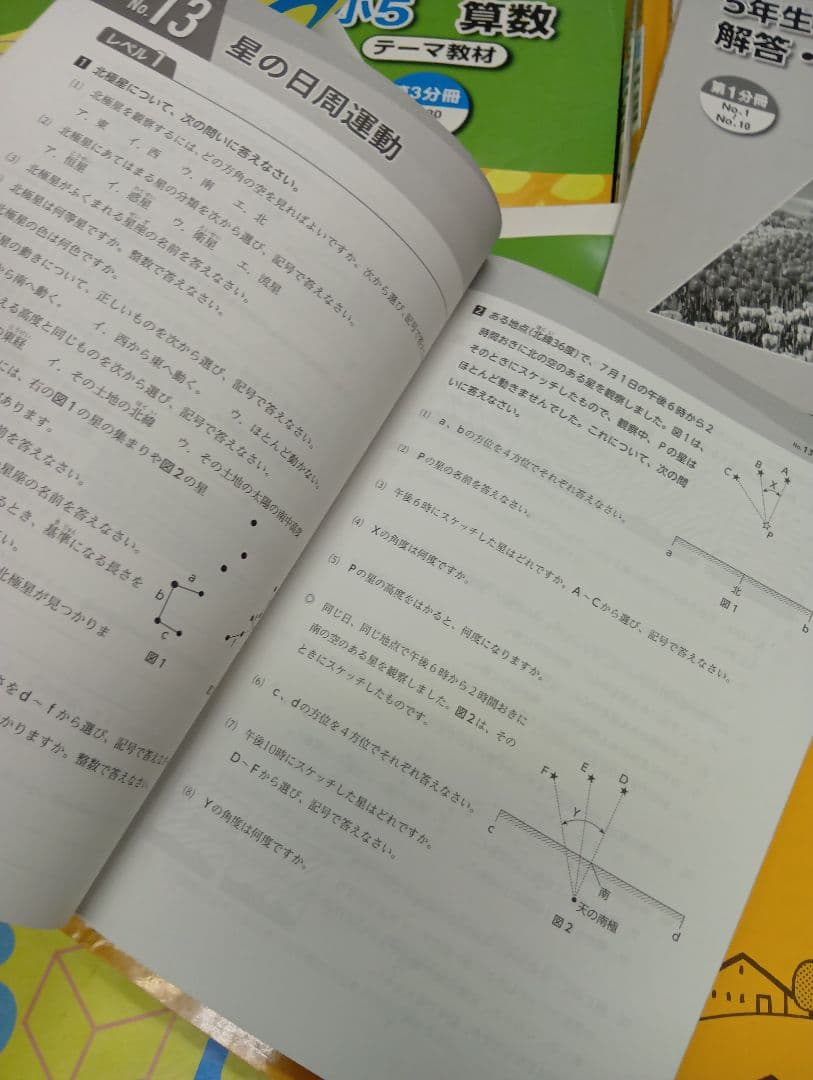 No.13
星の日周運動
レベル1
1 北極星について、次の問いに答えなさい。
(1) 北極星を観察するには、どの方角の空を見ればよいですか。次から選び、記号で
ア. 東 イ. 西 ウ. 南 エ. 北
(2) 北極星にあてはまる星の分類を次から選び、記号で答えなさい。
ア. 恒星 イ. 惑星 ウ. 衛星 エ. 流星
(3) 北極星がふくまれる星座の名前を答えなさい。
は何等星ですか。整数で答えなさい。
北極星の色は何色ですか。
星の動きについて、正しいものを次から選び、記号で答えなさい。
から南へ動く。 イ. 西から東へ動く。 ウ. ほとんど動かない。
える高度と同じものを次から選び、記号で答えなさい。
東経 イ. その土地の北緯 ウ. その土地の太陽の南中高度
には、右の図1の星の集まりや図2の星
あります。
前を答えなさい。
星座の名前を答えなさい。
るとき、基準になる長さを
い。
北極星が見つかりま
さをd〜fから選び、記号で答え
かりますか。整数で答えなさい
a
b
c
図1
2 ある地点(北緯36度)で、7月1日の午後6時から2
時間おきに北の空のある星を観察しました。図1は、
そのときにスケッチしたもので、観察中、Pの星は
ほとんど動きませんでした。これについて、次の問
いに答えなさい。
(1) a、bの方位を4方位でそれぞれ答えなさい。
(2) Pの星の名前を答えなさい。
(3) 午後6時にスケッチした星はどれですか。A〜Cから選び、記号で答えなさい。
(4) Xの角度は何度ですか。
(5) Pの星の高度をはかると、何度になりますか。
◎ 同じ日、同じ地点で午後6時から2時間おきに
南の空のある星を観察しました。図2は、その
ときにスケッチしたものです。
(6) c、dの方位を4方位でそれぞれ答えなさい。
(7) 午後10時にスケッチした星はどれですか。
D〜Fから選び、記号で答えなさい。
(8) Yの角度は何度ですか。
C B A
X
P
a
北
b
図1
F E D
Y
c
南
天の南極
d
図2
No.13
小5 算数
テーマ教材
第3分冊
5年生
解答・
第1分冊
No.1
No.10